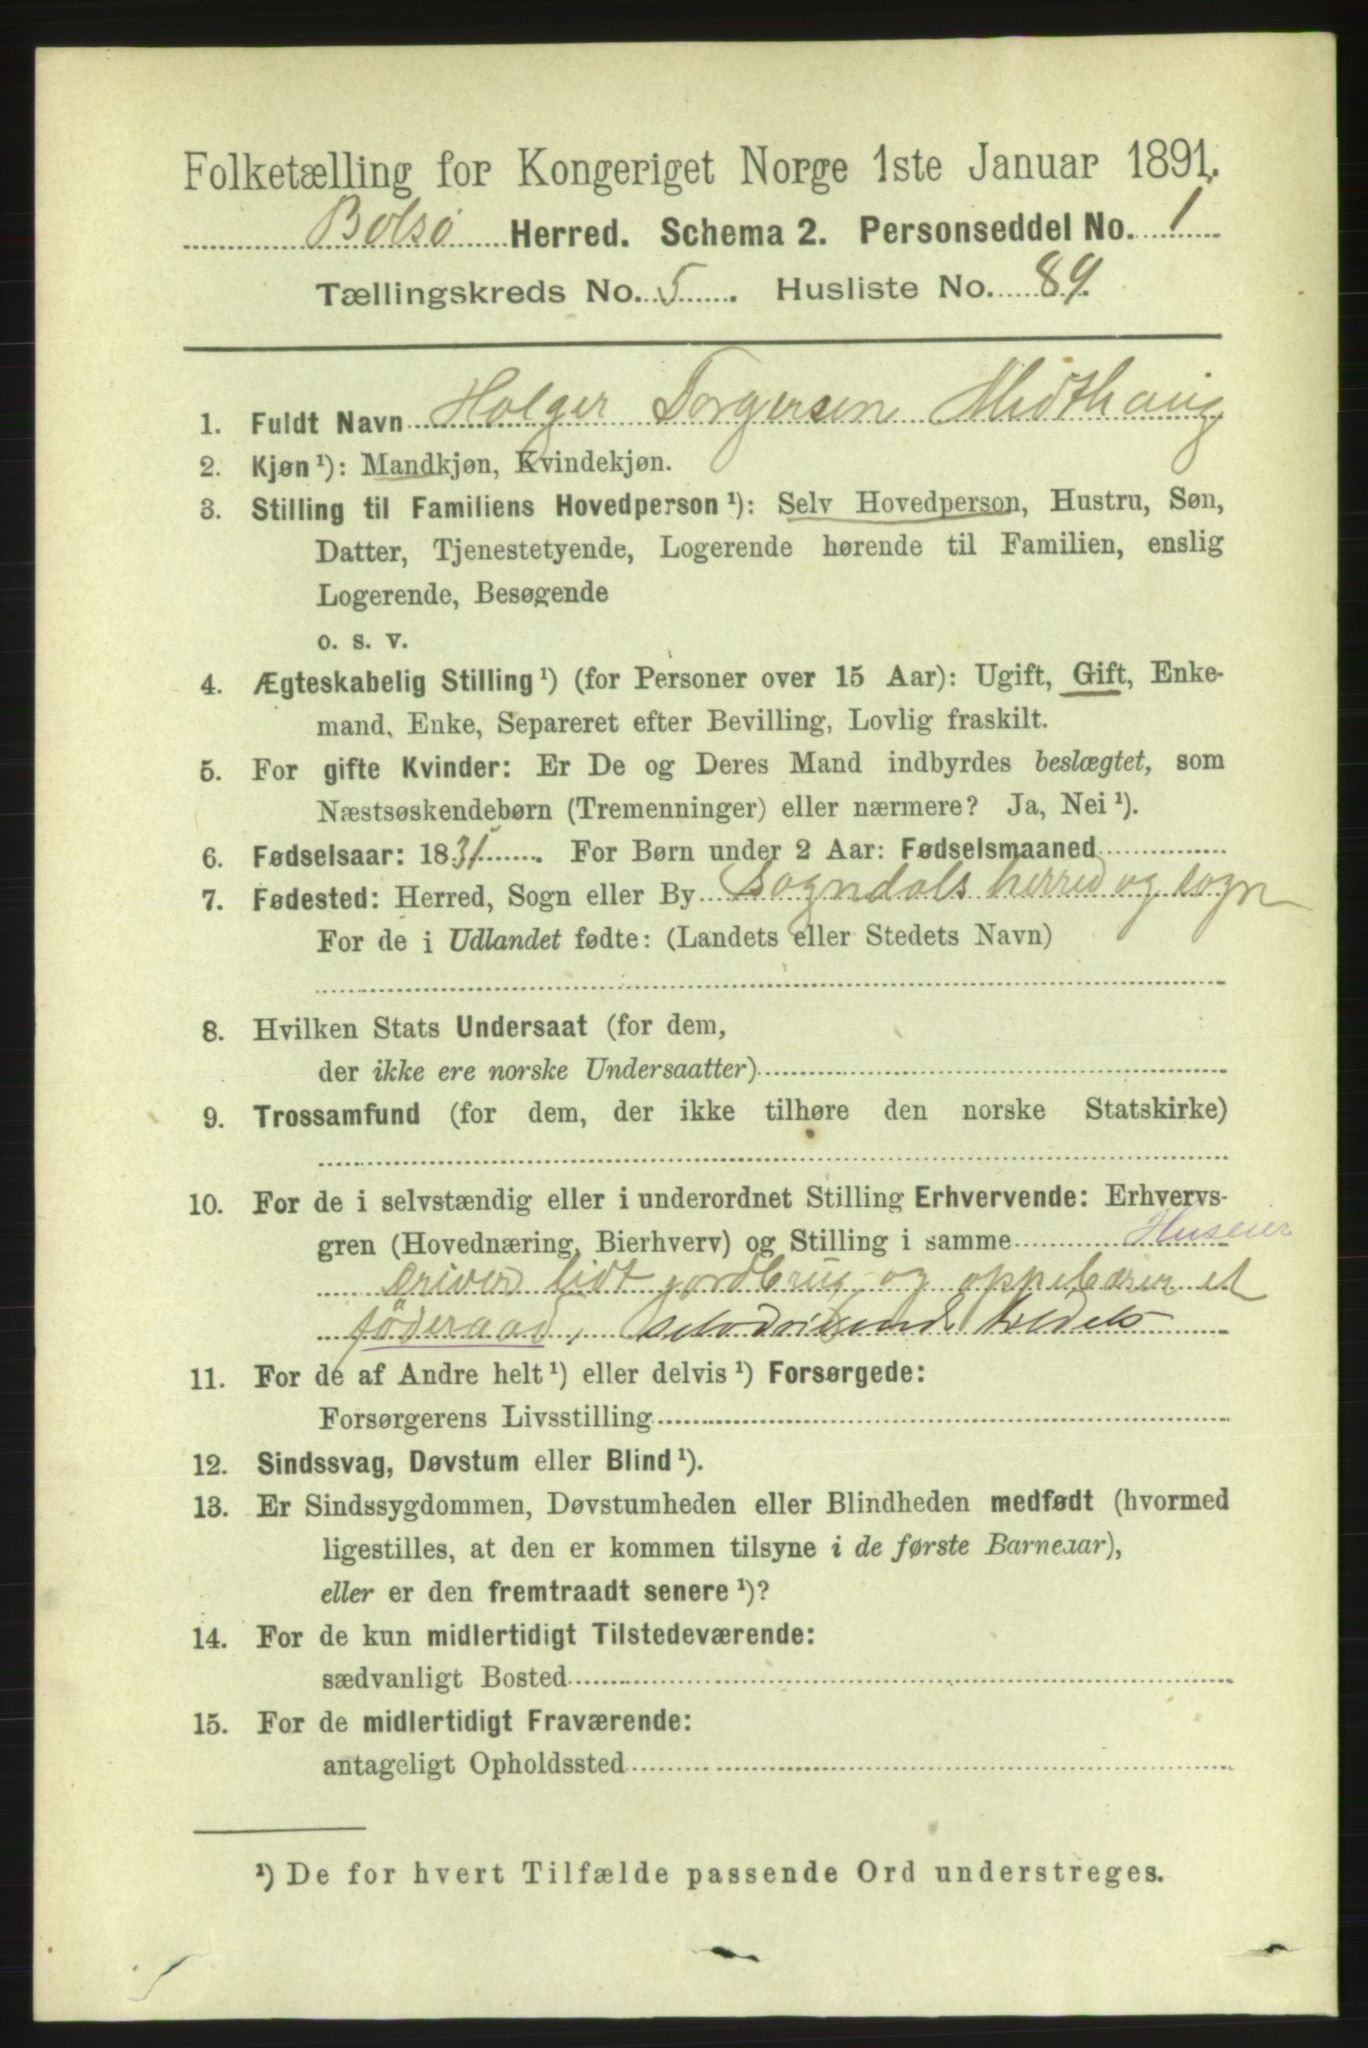 Folketælling for Kongeriget Norge 1ste Januar 1891.
Bolsø Herred. Schema 2. Personseddel No. 1
Tællingskreds No. 5. Husliste No. 89.
1. Fuldt Navn Holger Torgersen Midthaug
2. Kjøn ¹): Mandkjøn, Kvindekjøn.
3. Stilling til Familiens Hovedperson ¹): Selv Hovedperson, Hustru, Søn,
Datter, Tjenestetyende, Logerende hørende til Familien, enslig
Logerende, Besøgende
o. s. v.
4. Ægteskabelig Stilling ¹) (for Personer over 15 Aar): Ugift, Gift, Enke-
mand, Enke, Separeret efter Bevilling, Lovlig fraskilt.
5. For gifte Kvinder: Er De og Deres Mand indbyrdes beslægtet, som
Næstsøskendebørn (Tremenninger) eller nærmere? Ja, Nei ¹).
6. Fødselsaar: 1831. For Børn under 2 Aar: Fødselsmaaned
7. Fødested: Herred, Sogn eller By Sogndals herred og sogn
For de i Udlandet fødte: (Landets eller Stedets Navn)
8. Hvilken Stats Undersaat (for dem,
der ikke ere norske Undersaatter)
9. Trossamfund (for dem, der ikke tilhøre den norske Statskirke)
10. For de i selvstændig eller i underordnet Stilling Erhvervende: Erhvervs-
gren (Hovednæring, Bierhverv) og Stilling i samme Huseier
driver lidt jordbrug og oppebærer et
föderaad, selvdrivende
11. For de af Andre helt ¹) eller delvis ¹) Forsørgede:
Forsørgerens Livsstilling
12. Sindssvag, Døvstum eller Blind ¹).
13. Er Sindssygdommen, Døvstumheden eller Blindheden medfødt (hvormed
ligestilles, at den er kommen tilsyne i de første Barneaar),
eller er den fremtraadt senere ¹)?
14. For de kun midlertidigt Tilstedeværende:
sædvanligt Bosted
15. For de midlertidigt Fraværende:
antageligt Opholdssted
¹) De for hvert Tilfælde passende Ord understreges.